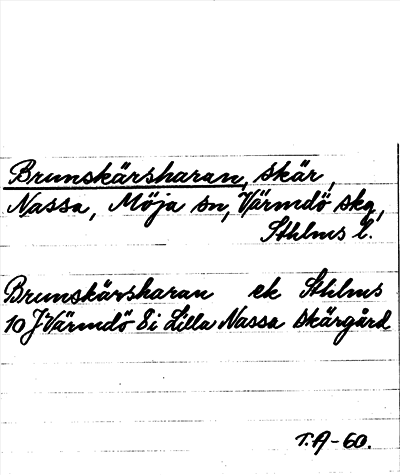 Brunskärsharan, skär,
Nassa, Möja sn, Värmdö skg,
Sthlms l.
Brunskärsharan ek Sthlms
10 J Värmdö 8i Lilla Nassa skärgård
T.A-60.